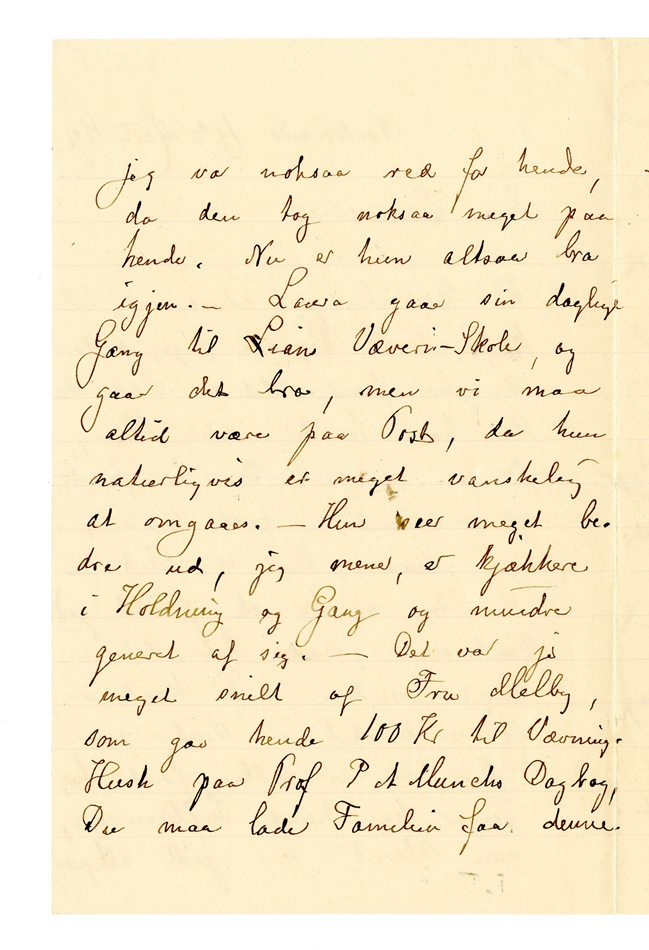 jeg va noksaa ræd for hende,
da den tog noksaa meget paa
hende. Nu er hun altsaa bra
igjen. – Laura gaar sin daglige
Gang til Lians Væveri-Skole, og
gaar det bra, men vi maa
altid være paa Post, da hun
naturligvis er meget vanskelig
at omgaaes. – Hun seer meget be-
dre ud, jeg mener, er kjækkere
i Holdning og Gang og mindre
generet af sig. – Det var jo
meget snilt af Fru Melby,
som gav hende 100 Kr til Vævning.
Husk paa Prof P A Munchs Dagbog,
Du maa lade Familien faa denne.